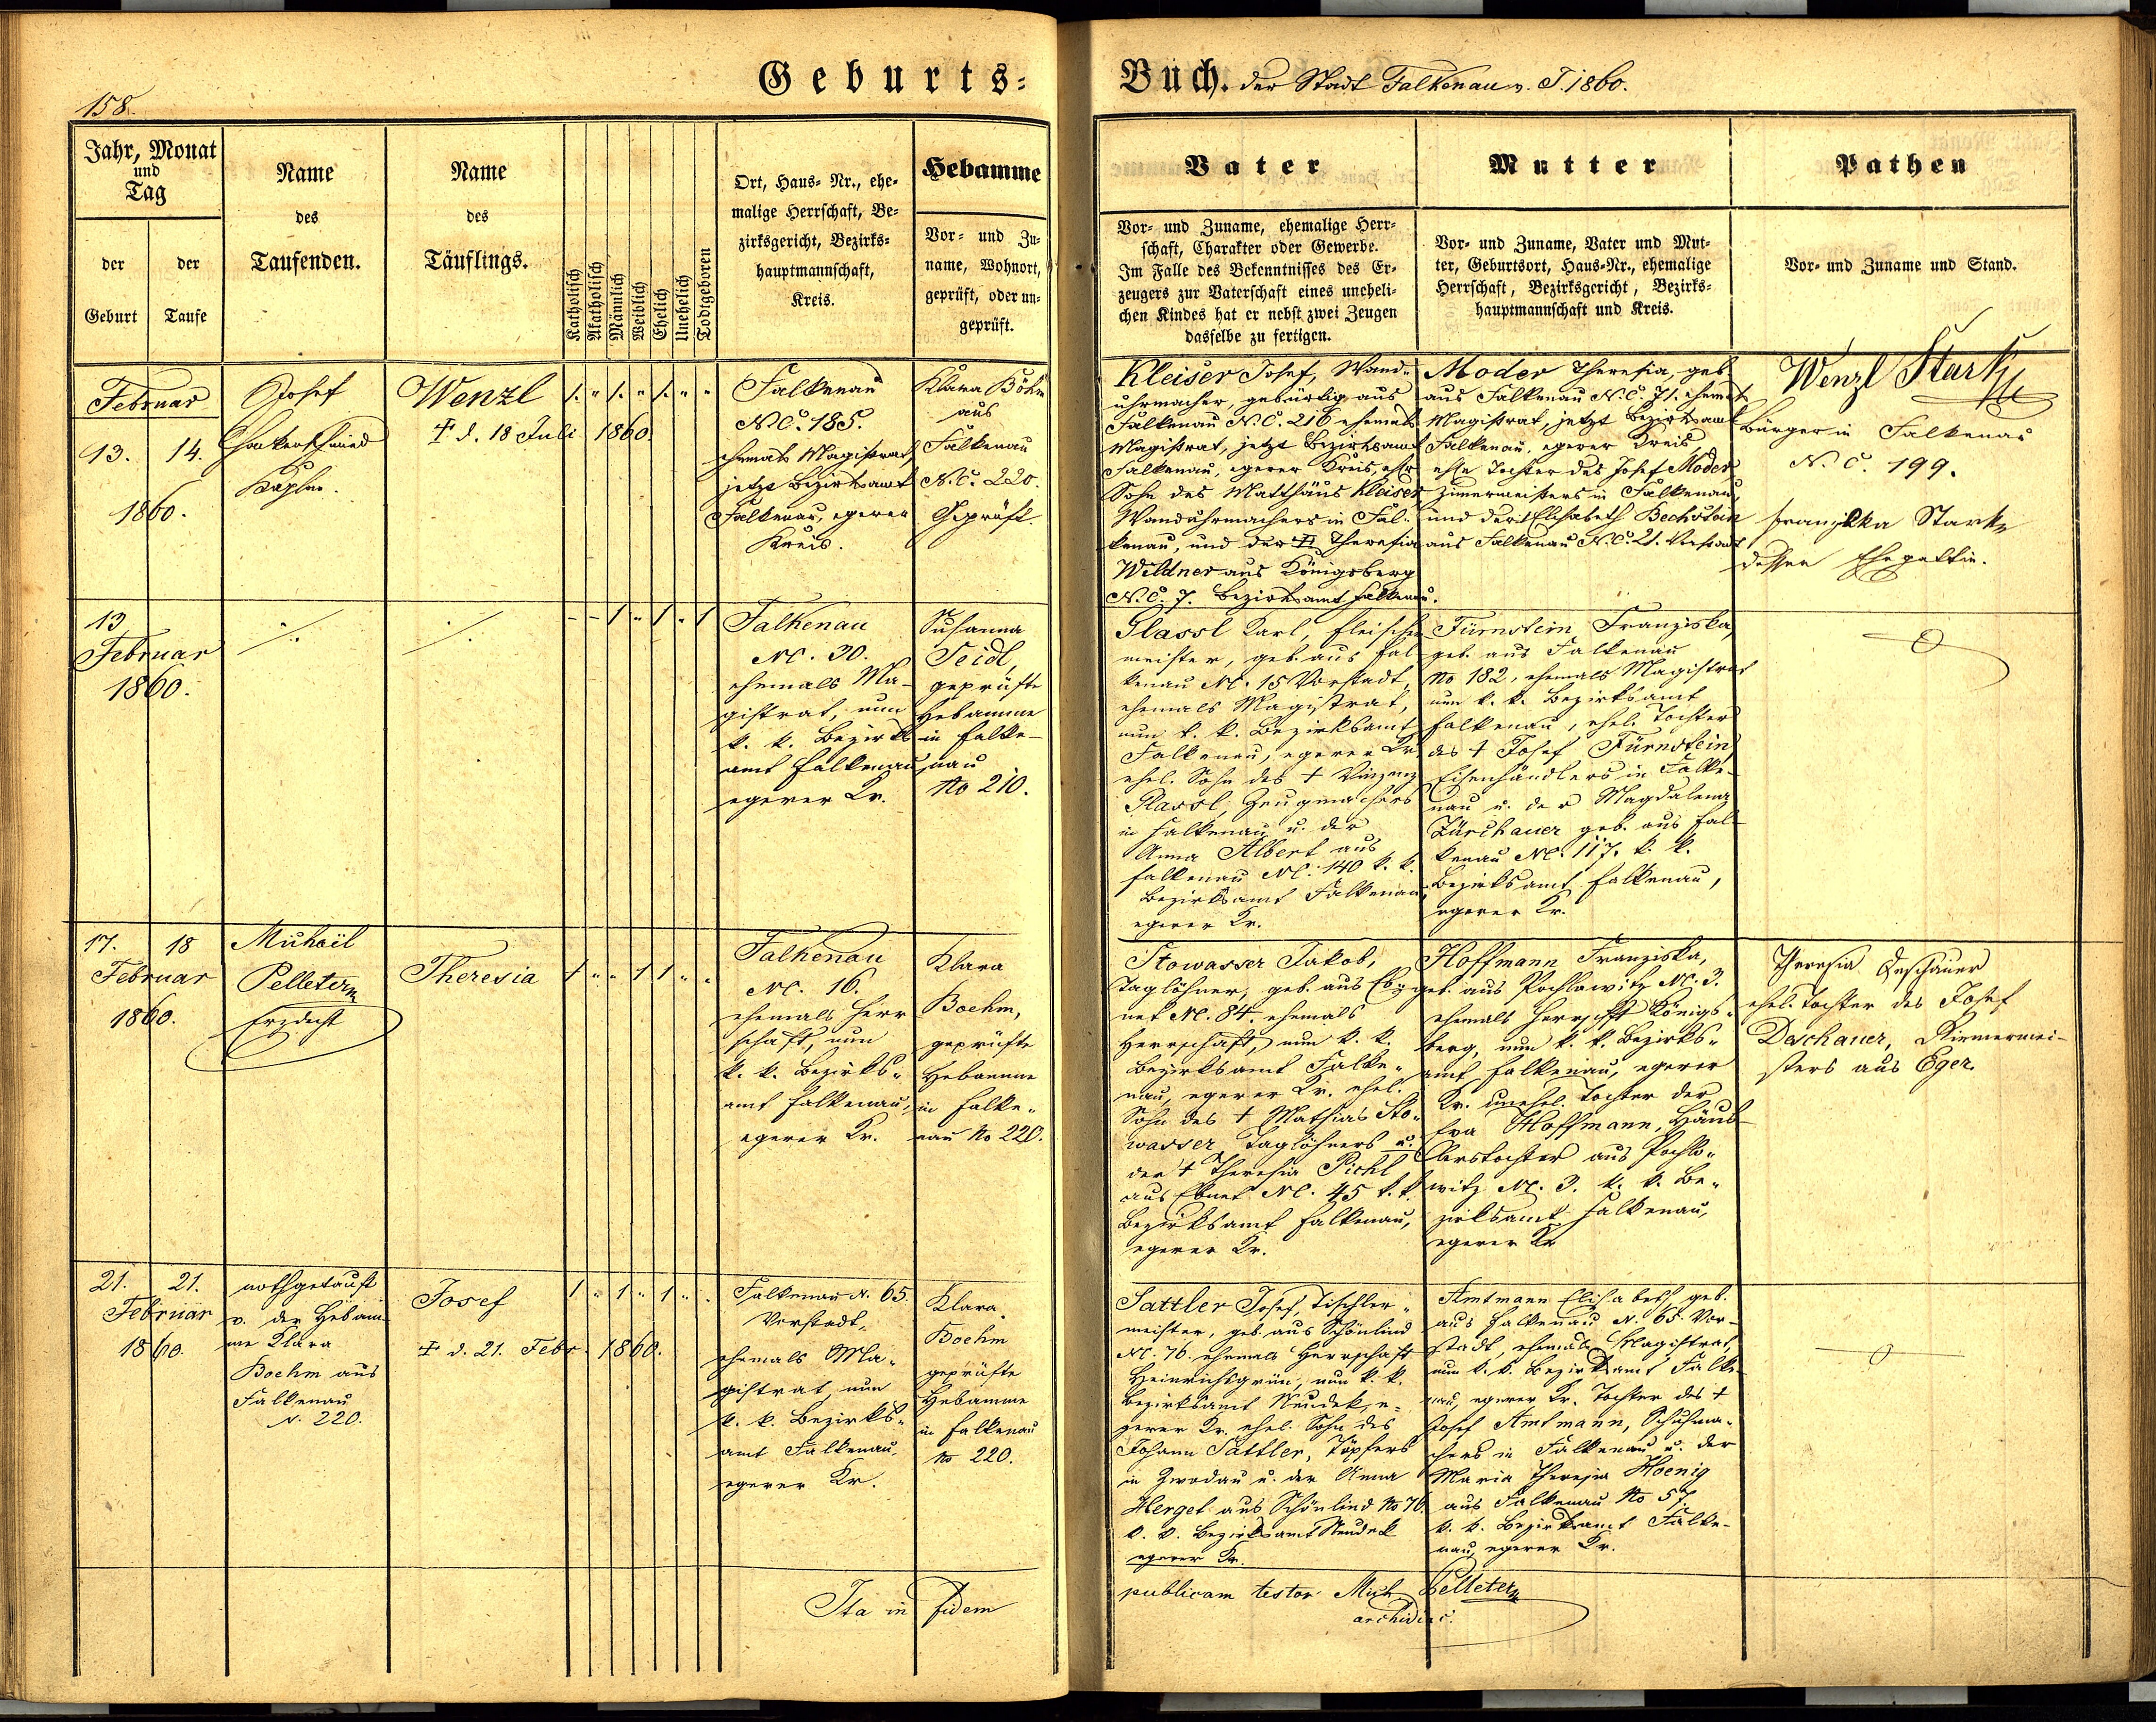 158.
Geburts-
Buch. der Stadt Falkenau v. J. 1860.
Jahr, Monat
und
Tag
der
Geburt
der
Taufe
Name
des
Taufenden.
Name
des
Täuflings.
Katholisch
Akatholisch
Männlich
Weiblich
Ehelich
Unehelich
Todtgeboren
Ort, Haus- Nr., ehe-
malige Herrschaft, Be-
zirksgericht, Bezirks-
hauptmannschaft,
Kreis.
Hebamme
Vor- und Zu-
name, Wohnort,
geprüft, oder un-
geprüft.
Vater
Vor- und Zuname, ehemalige Herr-
schaft, Charakter oder Gewerbe.
Im Falle des Bekenntnisses des Er-
zeugers zur Vaterschaft eines uneheli-
chen Kindes hat er nebst zwei Zeugen
dasselbe zu fertigen.
Mutter
Vor- und Zuname, Vater und Mut-
ter, Geburtsort, Haus-Nr., ehemalige
Herrschaft, Bezirksgericht, Bezirks-
hauptmannschaft und Kreis.
Pathen
Vor- und Zuname und Stand.
Februar
13. 14.
1860.
Josef
Kaplan.
Wenzl
† d. 18 Juli 1860.
1. " 1. " 1. " "
Falkenau
N.C. 185.
ehemals Magistrat,
jetzt Bezirksamt
Falkenau, egerer
Kreis.
Klara Böhm
aus
Falkenau
N.C. 220.
Geprüft.
Kleiser Josef, Wand-
uhrmacher, gebürtig aus
Falkenau N.C. 216 ehemals
Magistrat, jetzt Bezirksamt
Falkenau, egerer Kreis, ehl.
Sohn des Matthäus Kleiser
Wanduhrmachers in Fal-
kenau, und der † Theresia
Wildner aus Königsberg
N.C. 7. Bezirksamt Falkenau.
Moder Theresia, geb.
aus Falkenau N.C. 71. ehemals
Magistrat, jetzt Bezirksamt
Falkenau, egerer Kreis
ehe Tochter des Josef Moder,
Zimermeisters in Falkenau,
und der † Elisabeth Bechstein
aus Falkenau N.C. 21. Vorstadt
Wenzl Stark
Bürger in Falkenau
N.C. 199.
Franziska Stark
dessen Ehegattin.
13
Februar
1860.
- - 1 " 1 " 1
Falkenau
NC. 30.
ehemals Ma-
gistrat, nun
k. k. Bezirks
amt Falkenau
egerer Kr.
Susanna
Seidl,
geprüfte
Hebamme
in Falke-
nau
No 210.
Glassl Karl, Fleischer
meister, geb. aus Fal
kenau NC. 15 Vorstadt,
ehemals Magistrat,
nun k. k. Bezirksamt
Falkenau, egerer Kr.
ehel. Sohn des † Vinzenz
Glassl, Zeugmachers
in Falkenau u. der
Anna Albert aus
Falkenau NC. 140 k. k.
Bezirksamt Falkenau
egerer Kr.
Fürnstein Franziska,
geb. aus Falkenau
No 182, ehemals Magistrat
nun k. k. Bezirksamt
Falkenau, ehel. Tochter
des † Josef Fürnstein
Eisenhändlers in Falke-
nau u. der Magdalena
Zürchauer geb. aus Fal-
kenau NC. 117. k. k.
Bezirksamt Falkenau,
egerer Kr.
17. 18
Februar
1860.
Michaël
Pelleter
Erzdecht
Theresia
1 " " 1 1 " "
Falkenau
NC. 16.
ehemals Herr
schaft, nun
k. k. Bezirks-
amt Falkenau,
egerer Kr.
Klara
Boehm,
geprüfte
Hebamme
in Falke-
nau No 220.
Stowasser Jakob,
Taglöhner, geb. aus Eb-
net NC. 84. ehemals
Herrschaft, nun k. k.
Bezirksamt Falke-
nau, egerer Kr. ehel.
Sohn des † Mathias Sto-
wasser Taglöhners u.
der † Theresia Pichl
aus Ebnet NC. 45 k. k.
Bezirksamt Falkenau,
egerer Kr.
Hoffmann Franziska,
geb. aus Pochlowitz NC. 3.
ehemals Herrschft Königs-
berg, nun k. k. Bezirks-
amt Falkenau, egerer
Kr. unehel. Tochter der
Eva Hoffmann, Häus-
lerstochter aus Pochlo-
witz NC. 3. k. k. Be-
zirksamt Falkenau,
egerer Kr
Theresia Daschauer
ehel. Tochter des Josef
Daschauer, Riemermei-
sters aus Eger.
21. 21.
Februar
1860.
nothgetauft
v. der Hebam-
me Klara
Boehm aus
Falkenau
N. 220.
Josef
† d. 21. Febr. 1860.
1 " 1 " 1 " .
Falkenau N. 65.
Vorstadt,
ehemals Ma-
gistrat, nun
k. k. Bezirks-
amt Falkenau,
egerer Kr.
Klara
Boehm
geprüfte
Hebamme
in Falkenau
No 220.
Sattler Josef, Tischler-
meister, geb. aus Schönlind
NC. 76. ehemals Herrschaft
Heinrichsgrün, nun k. k.
Bezirksamt Neudek, e-
gerer Kr. ehel. Sohn des
Johann Sattler, Töpfers
in Zwodau u. der Anna
Herget aus Schönlind No 76.
k. k. Bezirksamt Neudek
egerer Kr.
Amtmann Elisabeth geb.
aus Falkenau N. 65. Vor-
stadt, ehemals Magistrat,
nun k. k. Bezirksamt Falke-
nau, egerer Kr. Tochter des †
Josef Amtmann, Schuhma-
chers in Falkenau u. der
Maria Theresia Hoenig
aus Falkenau No 57.
k. k. Bezirksamt Falke-
nau, egerer Kr.
Ita in fidem
publicam testor Mich Pelleter
archidiac.